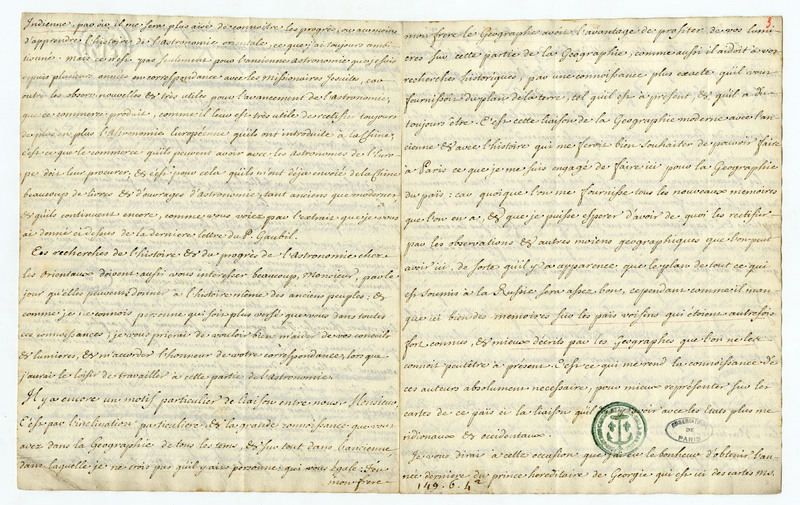 Indienne, par où il me sera plus aisé de connoitre les progrès, ou au moins
d'apprendre l'histoire de l'astronomie orientale, ce que j'ai toujours ambi-
tionné; mais ce n'est pas seulement pour l'ancienne astronomie que je suis
depuis plusieurs années en correspondance avec les missionaires Jesuites, car
outre les observ. nouvelles & très utiles pour l'avancement de l'astronomie,
que ce commerce produit, comme il leur est très utile de rectifier toujours
de plus en plus l'Astronomie Européenne qu'ils ont introduite à la Chine;
c'est ce que le commerce qu'ils peuvent avoir avec les Astronomes de l'Euro-
pe doit leur procurer, & c'est pour cela qu'ils m'ont déja envoié de la Chine
beaucoup de livres & d'ouvrages d'astronomie, tant anciens que modernes,
& qu'ils continuent encore, comme vous voiez par l'extrait que je vous
ai donné ci dessus de la derniere lettre du P. Gaubil.
Les recherches de l'histoire & du progrès de l'Astronomie chez
les Orientaux doivent aussi vous interesser beaucoup, Monsieur, par le
jour qu'elles peuvent donner à l'histoire même des anciens peuples; &
comme je ne connois personne qui soit plus versé que vous dans toutes
ces connoissances; je vous prierai de vouloir bien m'aider de vos conseils
& lumieres, & m'accorder l'honneur de votre correspondance, lors que
j'aurai le loisir de travailler à cette partie de l'astronomie.
Il y a encore un motif particulier de liaison entre nous, Monsieur,
C'est par l'inclination particuliere, & la grande connoissance que vous
avez dans la Géographie de tous les tems, & sur tout dans l'ancienne
dans laquelle je ne crois pas qu'il y ait personne qui vous égale: Feu
mon frere
5.
mon frere le Géographe avoit l'avantage de profiter de vos lumi-
eres sur cette partie de la Géographie; comme aussi il aidoit à vos
recherches historiques, par une connoissance plus exacte qu'il vous
fournissoit du plan de la terre, tel qu'il est à présent, & qu'il a du
toujours être. C'est cette liaison de la Geographie moderne avec l'an-
cienne & avec l'histoire qui me feroit bien souhaiter de pouvoir faire
à Paris ce que je me suis engagé de faire ici pour la Geographie
du païs: car quoique l'on me fournisse tous les nouveaux memoires
que l'on en a, & que je puisse esperer d'avoir de quoi les rectifier
par les observations & autres moiens geographiques que l'on peut
avoir ici, de sorte qu'il y a apparence que le plan de tout ce qui
est soumis à la Russie, sera assez bon, cependant comme il man-
que ici bien des memoires sur les païs voisins qui étoient autrefois
fort connus, & mieux décrits par les Geographes que l'on ne les
connoit peutêtre à present. C'est ce qui me rend la connoissance de
ces auteurs absolument necessaire, pour mieux représenter sur les
cartes de ce païs ci la liaison qu'il avoir avec les états plus me-
ridionaux & occidentaux.
Je vous dirai à cette occasion que j'ai eu le bonheur d'obtenir l'an-
née derniere du prince hereditaire de Georgie qui est ici des cartes ms.
149.6.4ª
OBSERVATOIRE
DE
PARIS